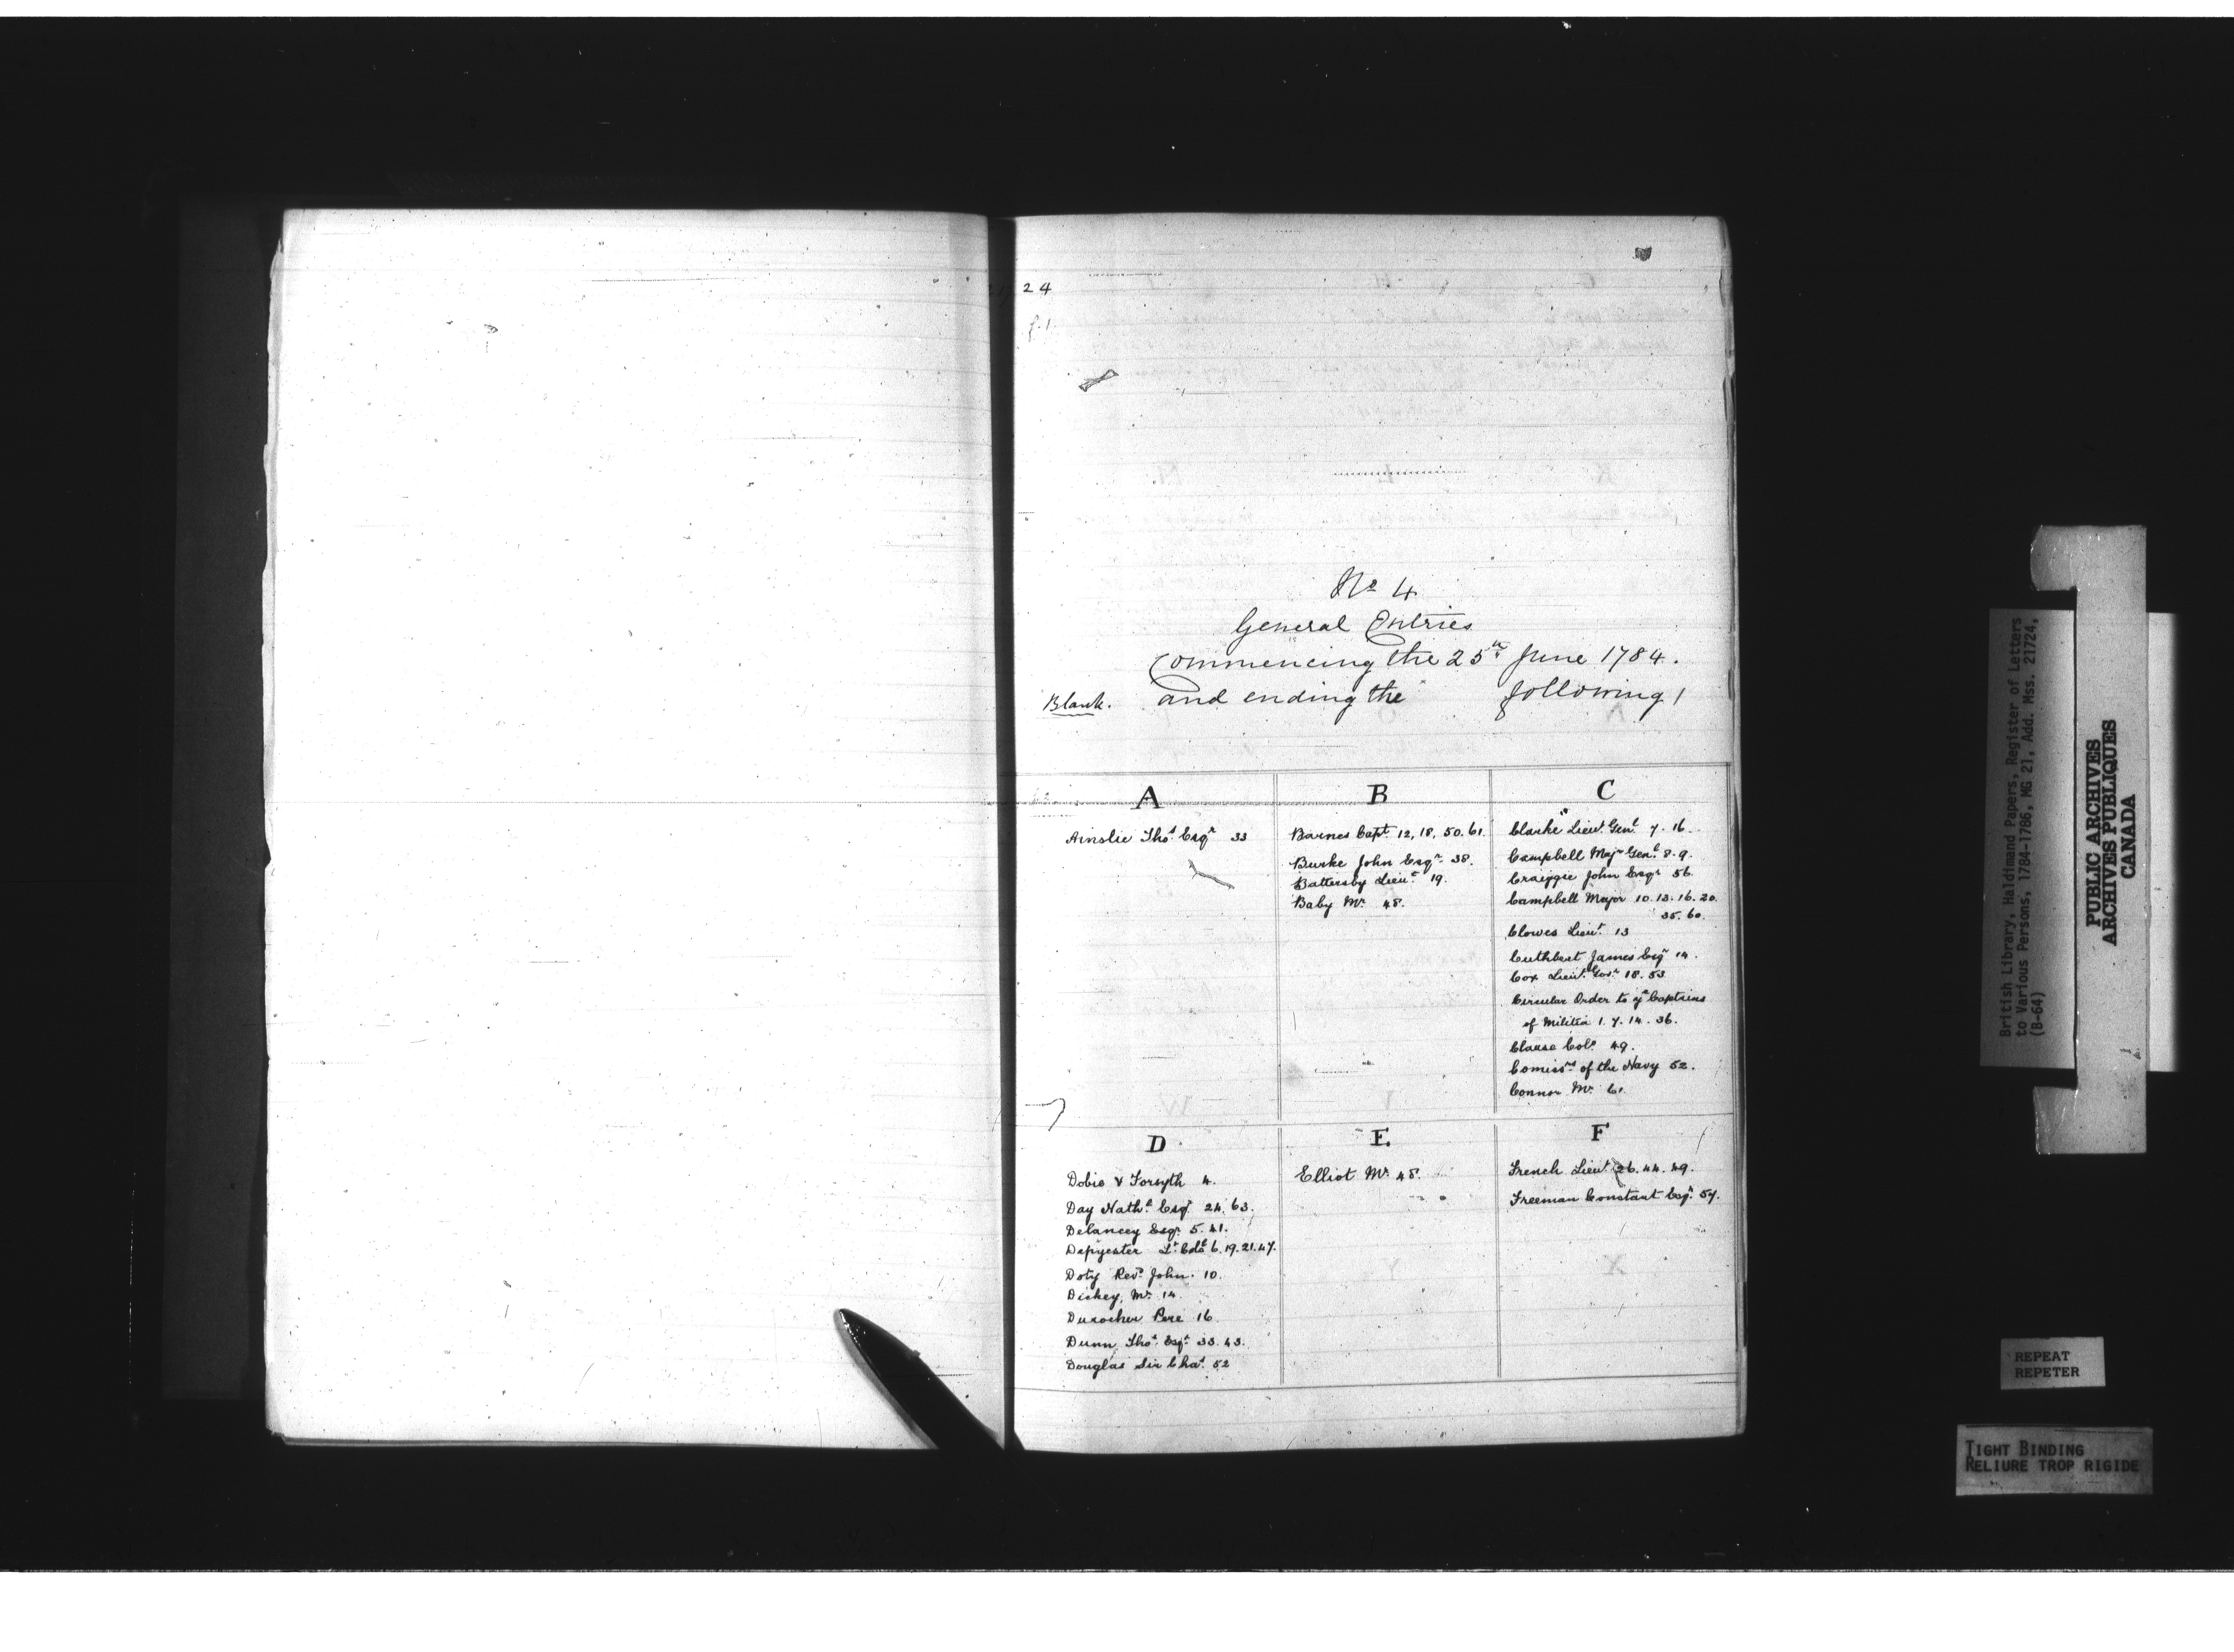 24
f. 1
No 4
General Entries
Commencing the 25th June 1784.
Blank.
and ending the following
A
Ainslie Thos Esqr 33
B
Barnes Capt. 12, 18, 50. 61.
Burke John Esqr 38.
Battersby Lieut 19.
Baby Mr 48.
C
Clarke Lieut Genl 7. 16.
Campbell Majr Genl 8. 9.
Craiggie John Esqr 56.
Campbell Major 10. 13. 16. 20.
35. 60.
Clowes Lieut. 13
Cuthbert James Esqr 14.
Cox Lieut. Govr 18. 53
Circular Order to ye Captains
of Militia 1. 7. 14. 36.
Clause Colo 49.
Comissrs of the Navy 52.
Connor Mr 61.
D
Dobie & Forsyth 4.
Day Nathl Esqr 24. 63.
Delancey Esqr 5. 41.
Depyester Lt. Coll 6. 19. 21. 47.
Doty Revd John. 10.
Dickey Mr. 14.
Durocher Pere 16.
Dunn Thos. Esqr 33. 43.
Douglas Sir Chas. 52
E.
Elliot Mr. 48.
F
French Lieut 26. 44. 49.
Freeman Constant Esqr. 57.
British Library, Haldimand Papers, Register of Letters
to Various Persons, 1784-1786, MG 21, Add. Mss. 21724,
(B-64)
PUBLIC ARCHIVES
ARCHIVES PUBLIQUES
CANADA
REPEAT
REPETER
TIGHT BINDING
RELIURE TROP RIGIDE